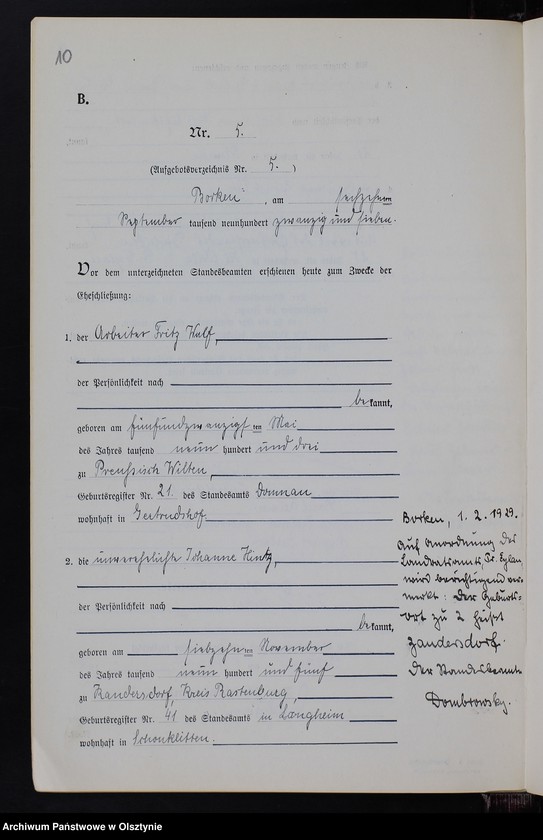 10
B.
Nr. 5.
(Aufgebotsverzeichnis Nr. 5.)
Borken, am sechzehnten
September tausend neunhundert zwanzig und sieben.
Vor dem unterzeichneten Standesbeamten erschienen heute zum Zwecke der
Eheschließung:
1. der Arbeiter Fritz Wulf,
der Persönlichkeit nach
bekannt,
geboren am fünfundzwanzigsten Mai
des Jahres tausend neun hundert und drei
zu Preußisch Wilten,
Geburtsregister Nr. 21. des Standesamts Domnau
wohnhaft in Gertrudshof
2. die unverehelichte Johanne Hintz,
der Persönlichkeit nach
bekannt,
geboren am siebzehnten November
des Jahres tausend neun hundert und fünf
zu Kandersdorf, Kreis Rastenburg,
Geburtsregister Nr. 41 des Standesamts in Langheim
wohnhaft in Schönklitten.
Borken, 1. 2. 1929.
Auf Anordnung des
Landratsamts, Pr. Eylau
wird berichtigend ver-
merkt: Der Geburts-
ort zu 2 heißt
Zandersdorf.
Der Standesbeamte
Dombrowsky.
Archiwum Państwowe w Olsztynie